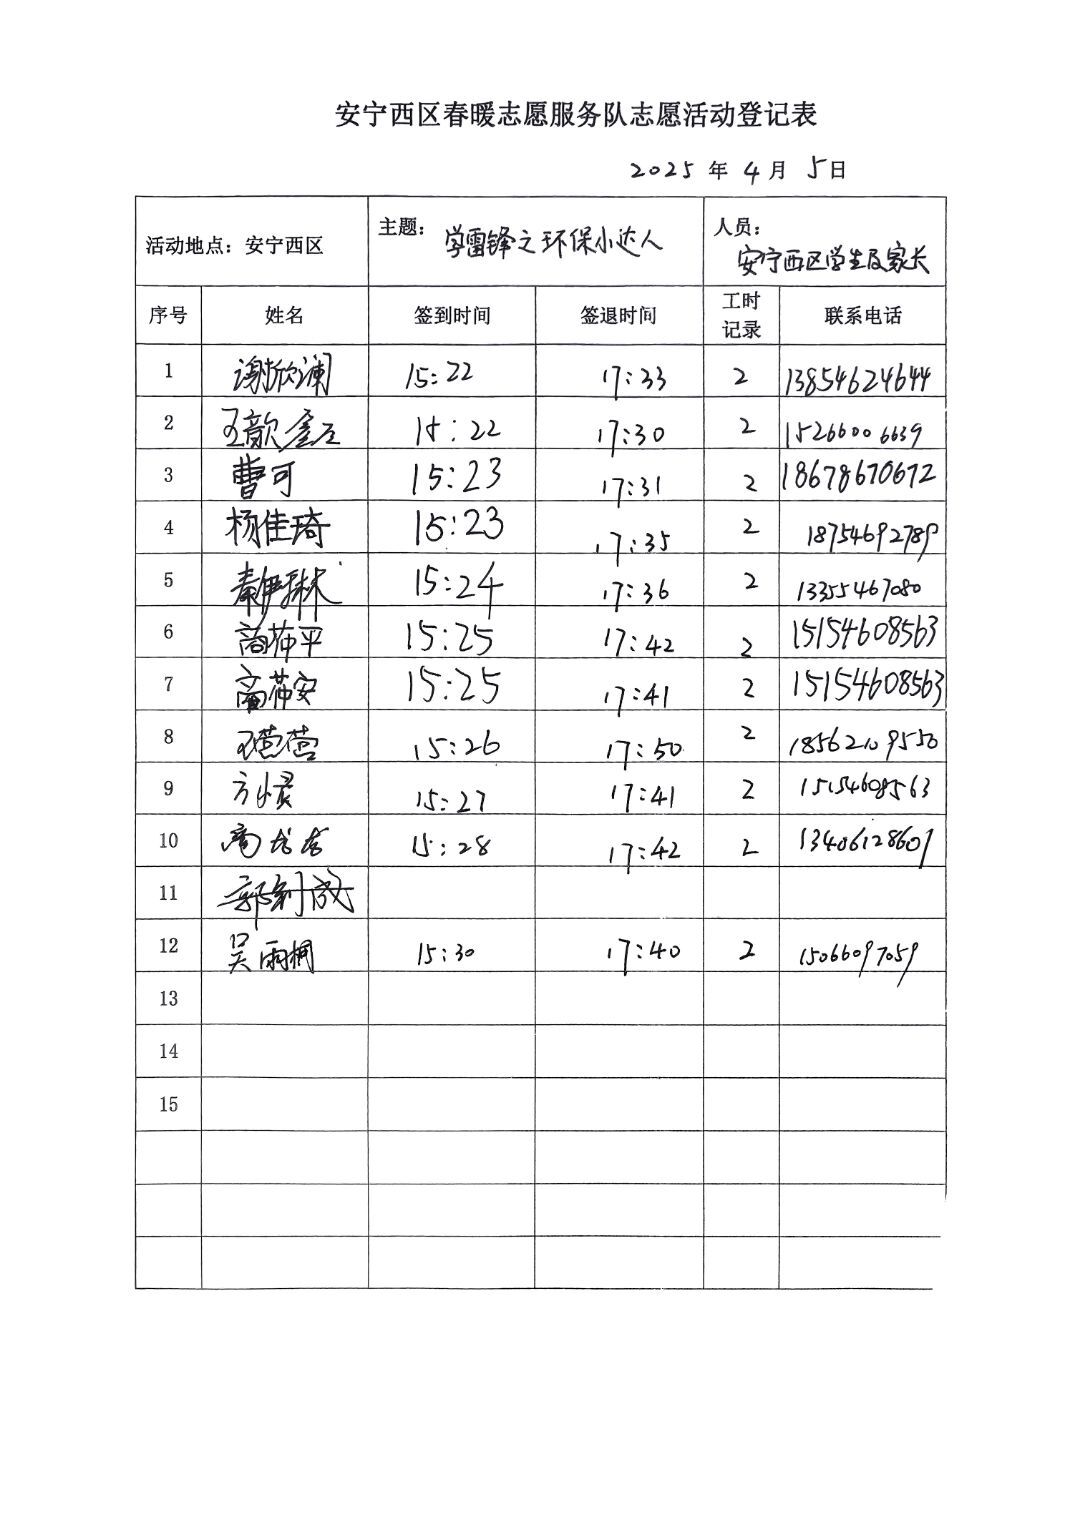 安宁西区春暖志愿服务队志愿活动登记表
2025 年 4 月 5 日
活动地点：安宁西区 主题：学雷锋之环保小达人 人员：安宁西区学生及家长
序号 姓名 签到时间 签退时间 工时记录 联系电话
1 谢欣澜 15:22 17:33 2 13854624644
2 王歆 15:22 17:30 2 15266006639
3 曹可 15:23 17:31 2 18678670672
4 杨佳琦 15:23 17:35 2 18754692789
5 秦伊琳 15:24 17:36 2 13355467080
6 高茀平 15:25 17:42 2 15154608563
7 高茀安 15:25 17:41 2 15154608563
8 15:26 17:50 2 18562109550
9 方 15:27 17:41 2 15154608563
10 15:28 17:42 2 13406128607
11 郭利成
12 吴雨桐 15:30 17:40 2 15066097059
13
14
15